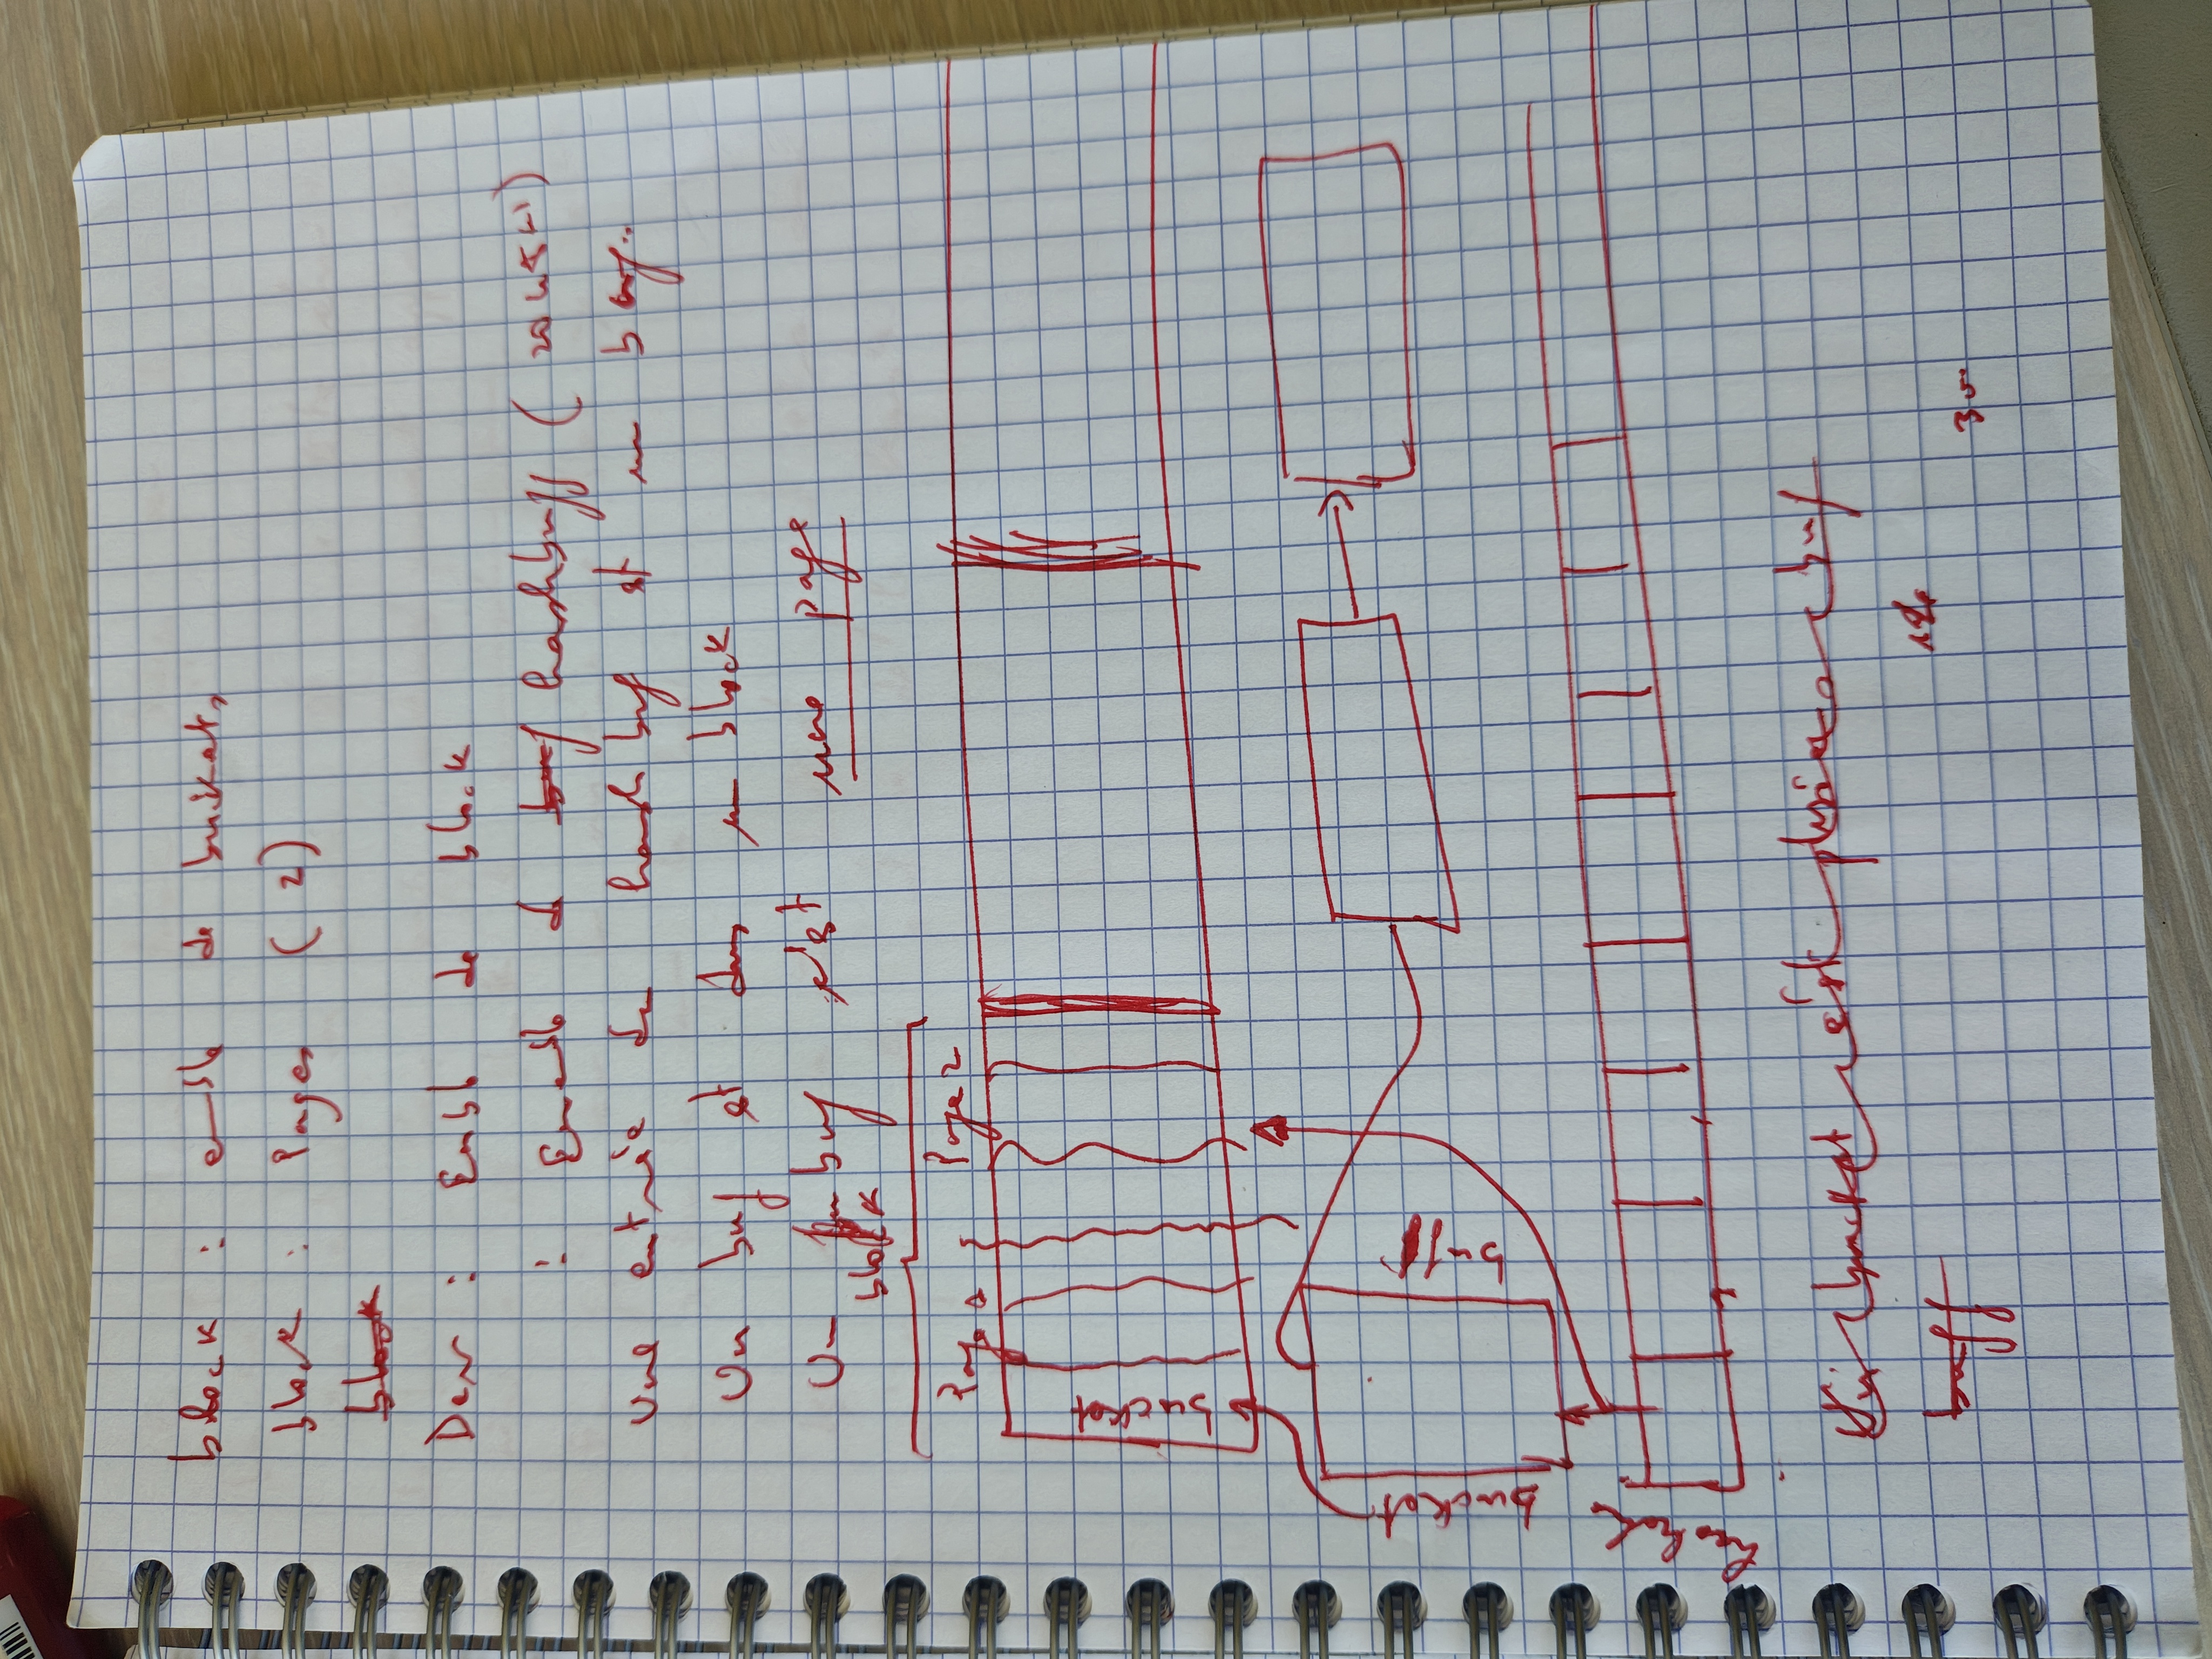 block : emsb de buckets
block : Pages (2)
block
Dev : Ensb de block
: Ensemb de buf hashbuff (
Une entrée du hash buf est un buf..
Un buf est dans un block
Un buf c'est une page
block
Page 1 Page 2
bucket
bucket
buff
hash
Un bucket c'est plusieurs buf
buff
30